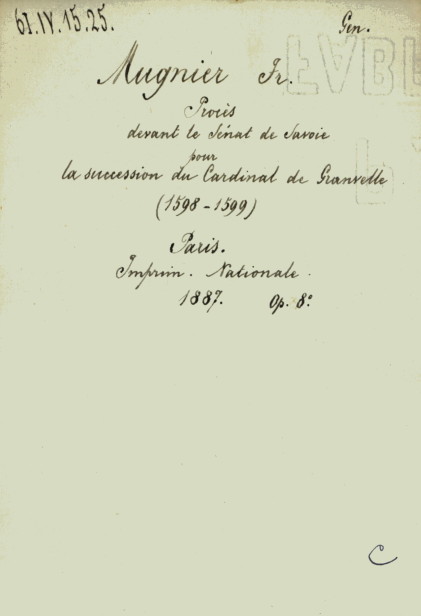 61.IV.15.25.
Gen.
Mugnier Fr.
Procès
devant le Sénat de Savoie
pour
la succession du Cardinal de Granvelle
(1598-1599)
Paris.
Imprim. Nationale.
1887. Op. 8°
C